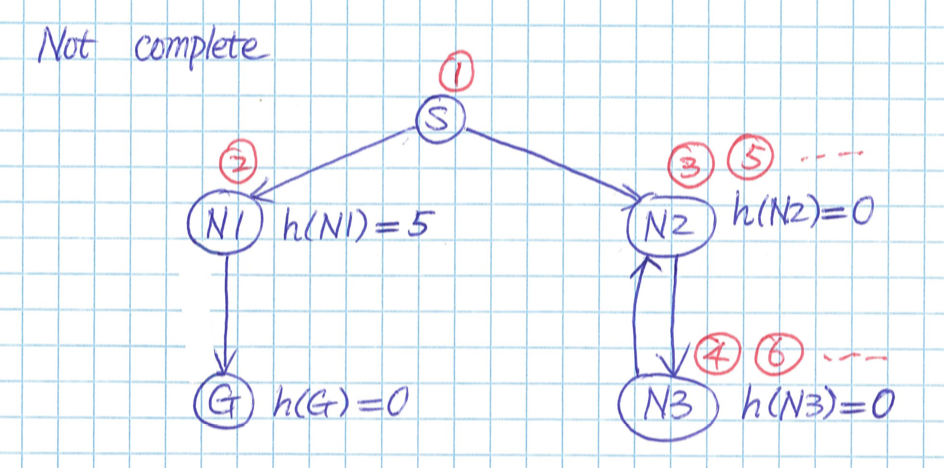 Not complete
①
S
②
③ ⑤ ----
N1 h(N1)=5
N2 h(N2)=0
④ ⑥ ----
G h(G)=0
N3 h(N3)=0